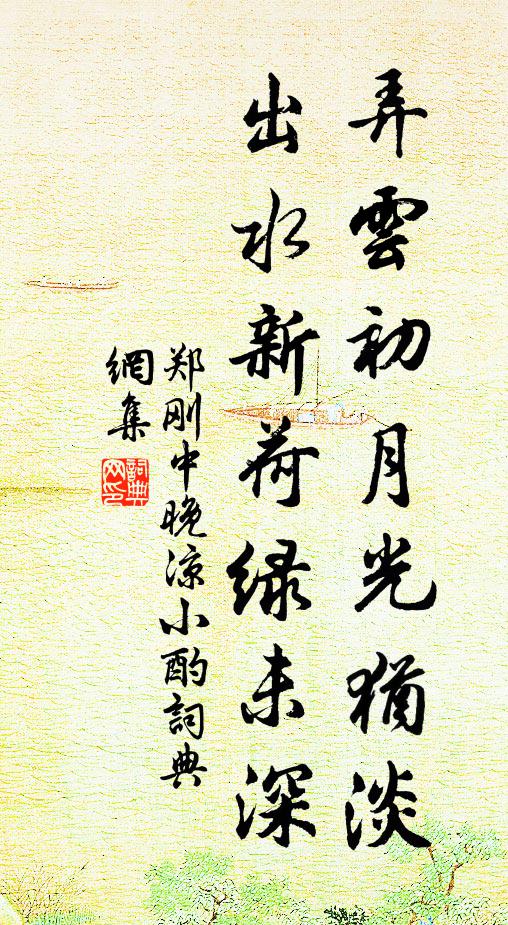 弄雲初月光猶淡
出水新荷绿未深
郑刚中晚凉小酌詞典
網集
詞典
网印